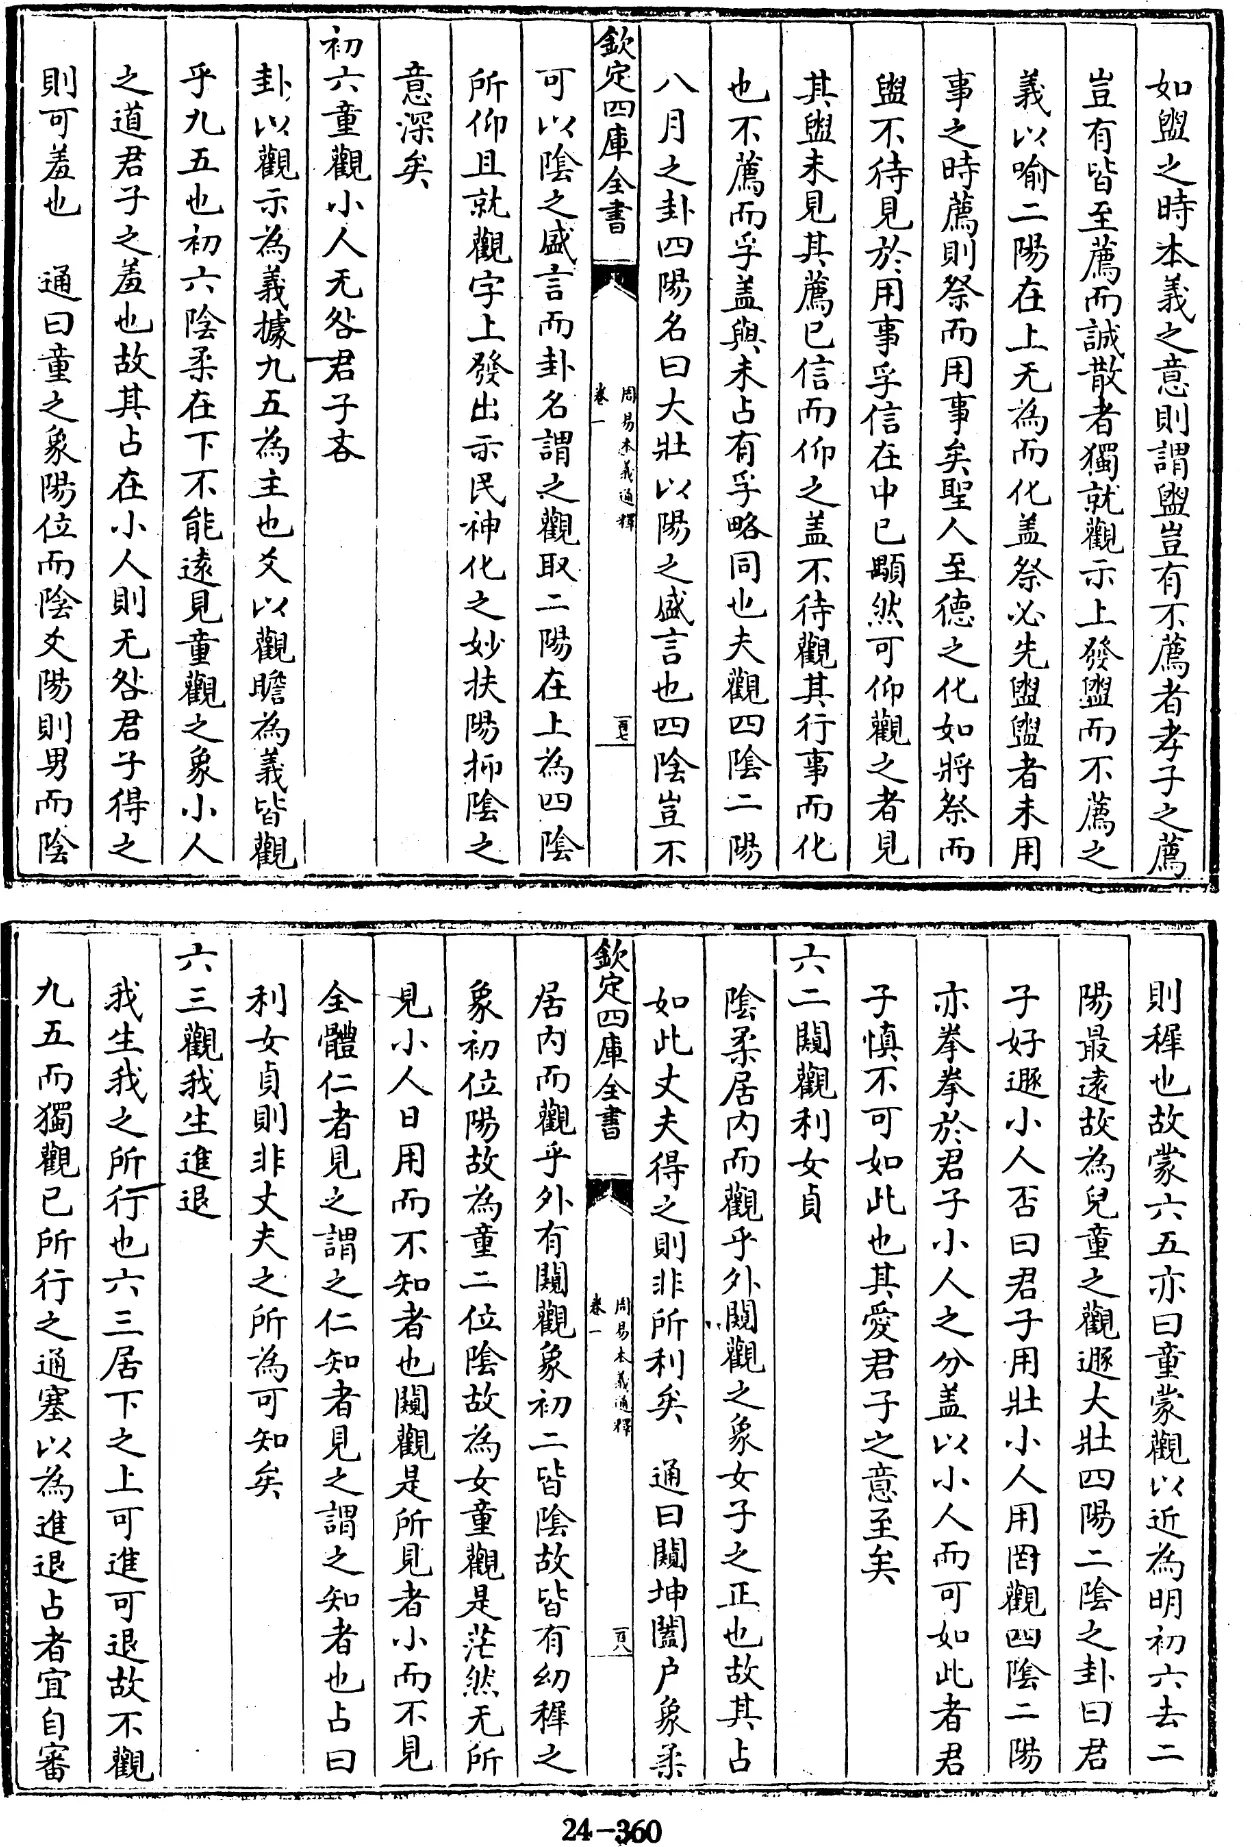 如盥之時本義之意則謂盥豈有不薦者孝子之薦
豈有皆至薦而誠散者獨就觀示上發盥而不薦之
義以喻二陽在上无為而化盖祭必先盥盥者未用
事之時薦則祭而用事矣聖人至德之化如將祭而
盥不待見於用事孚信在中已顒然可仰觀之者見
其盥未見其薦已信而仰之盖不待觀其行事而化
也不薦而孚盖與未占有孚略同也夫觀四陰二陽
八月之卦四陽名曰大壯以陽之盛言也四陰豈不
欽定四庫全書
周易本義通釋
卷一
百七
可以陰之盛言而卦名謂之觀取二陽在上為四陰
所仰且就觀字上發出示民神化之妙扶陽抑陰之
意深矣
初六童觀小人无咎君子吝
卦以觀示為義據九五為主也爻以觀瞻為義皆觀
乎九五也初六陰柔在下不能遠見童觀之象小人
之道君子之羞也故其占在小人則无咎君子得之
則可羞也　通曰童之象陽位而陰爻陽則男而陰
則穉也故蒙六五亦曰童蒙觀以近為明初六去二
陽最遠故為兒童之觀遯大壯四陽二陰之卦曰君
子好遯小人否曰君子用壯小人用罔觀四陰二陽
亦拳拳於君子小人之分盖以小人而可如此者君
子慎不可如此也其愛君子之意至矣
六二闚觀利女貞
陰柔居内而觀乎外闚觀之象女子之正也故其占
如此丈夫得之則非所利矣　通曰闚坤闔户象柔
欽定四庫全書
周易本義通釋
卷一
百八
居内而觀乎外有闚觀象初二皆陰故皆有幼穉之
象初位陽故為童二位陰故為女童觀是茫然无所
見小人日用而不知者也闚觀是所見者小而不見
全體仁者見之謂之仁知者見之謂之知者也占曰
利女貞則非丈夫之所為可知矣
六三觀我生進退
我生我之所行也六三居下之上可進可退故不觀
九五而獨觀已所行之通塞以為進退占者宜自審
24-360